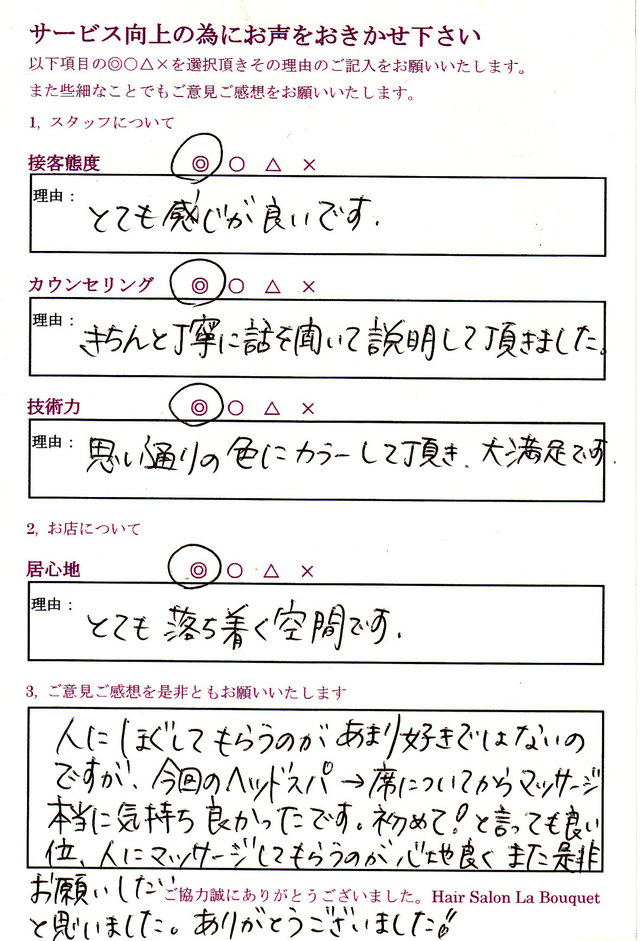 サービス向上の為にお声をおきかせ下さい
以下項目の◎○△×を選択頂きその理由のご記入をお願いいたします。
また些細なことでもご意見ご感想をお願いいたします。
1, スタッフについて
接客態度 ◎ ○ △ ×
理由：
とても感じが良いです.
カウンセリング ◎ ○ △ ×
理由：
きちんと丁寧に話を聞いて説明して頂きました。
技術力 ◎ ○ △ ×
理由：
思い通りの色にカラーして頂き、大満足です.
2, お店について
居心地 ◎ ○ △ ×
理由：
とても落ち着く空間です.
3, ご意見ご感想を是非ともお願いいたします
人にほぐしてもらうのがあまり好きではないの
ですが、今回のヘッドスパ→席についてからマッサージ
本当に気持ち良かったです。初めて!と言っても良い
位、人にマッサージしてもらうのが心地良くまた是非
お願いしたい
ご協力誠にありがとうございました。Hair Salon La Bouquet
と思いました。ありがとうございました!!